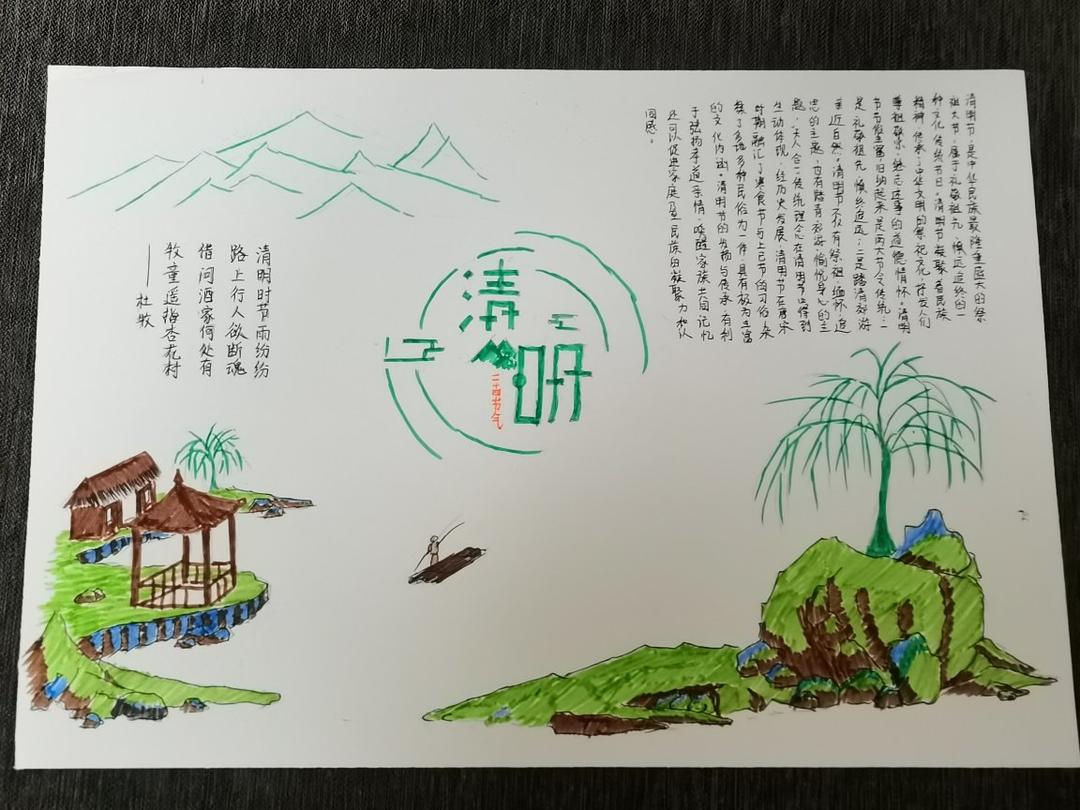 清明节，是中华民族最隆重盛大的祭
祖大节，属于礼敬祖先、慎远追终的一
种文化传统节日。清明节凝聚着民族
精神，传承了中华文明的祭祀文化，抒发人们
尊祖敬宗、继志述事的道德情怀。清明
节节俗丰富归纳起来是两大节令传统：一
是礼敬祖先，慎终追远；二是踏清郊游
亲近自然。清明节不仅有祭祖、缅怀、追
思的主题，也有踏青郊游、愉悦身心的主
题，天人合一传统理念在清明节中得到
生动体现。经历史发展，清明节在唐宋
时期融汇了寒食节与上巳节的习俗，杂
糅了多地多种民俗为一体，具有极为丰富
的文化内涵。清明节的发扬与传承，有利
于弘扬孝道亲情、唤醒家族共同记忆
还可以促进家庭乃至民族的凝聚力和认
同感。
清明
二十四节气
清明时节雨纷纷
路上行人欲断魂
借问酒家何处有
牧童遥指杏花村
——杜牧